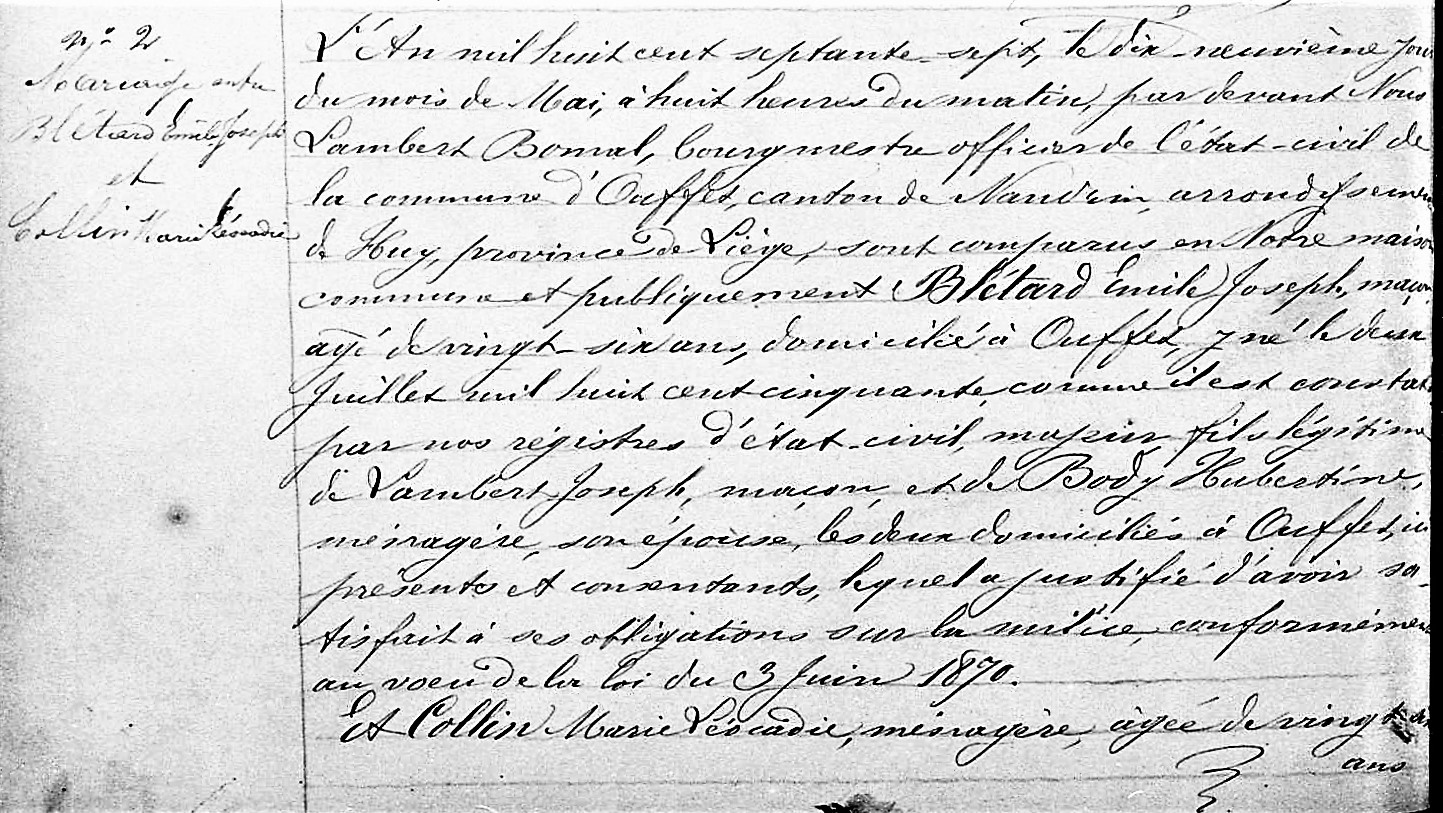 N° 2
Mariage entre
Blétard Emile Joseph
et
Collin Marie Léocadie
L'An mil huit cent septante-sept, le dix-neuvième jour
du mois de Mai, à huit heures du matin, par devant Nous
Lambert Bomal, bourgmestre officier de l'état-civil de
la commune d'Ouffet, canton de Nandrin, arrondissement
de Huy, province de Liège, sont comparus en Notre maison
commune et publiquement Blétard Emile Joseph, maçon,
agé de vingt-six ans, domicilié à Ouffet, y né le deux
Juillet mil huit cent cinquante, comme il est constaté
par nos régistres d'état-civil, majeur, fils légitime
de Lambert Joseph, maçon, et de Body Hubertine,
ménagère, son épouse, les deux domiciliés à Ouffet, ici
présents et consentants, lequel a justifié d'avoir sa-
tisfait à ses obligations sur la milice, conformément
au voeu de la loi du 3 Juin 1870.
Et Collin Marie Léocadie, ménagère, âgée de vingt
ans